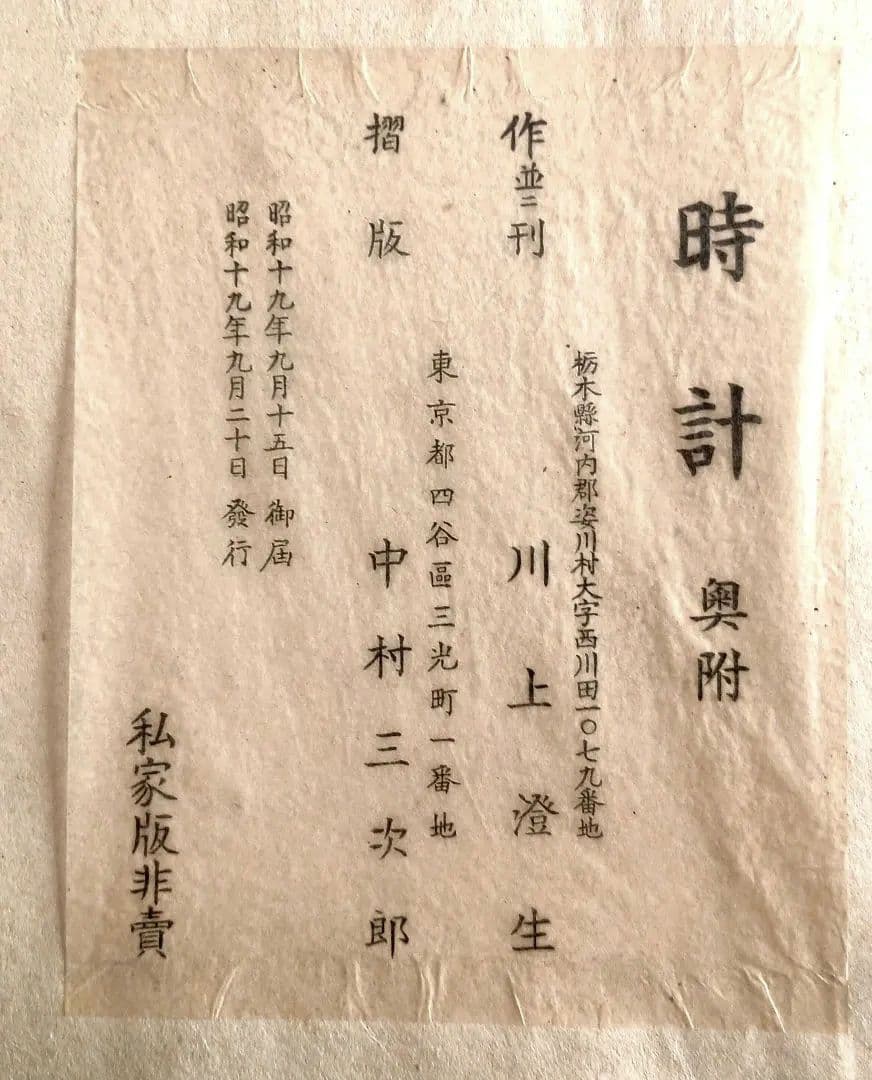 時計 奥附
栃木縣河内郡姿川村大字西川田一〇七九番地
作並ニ刊 川上澄生
東京都四谷區三光町一番地
摺版 中村三次郎
昭和十九年九月十五日 御届
昭和十九年九月二十日 發行
私家版非賣